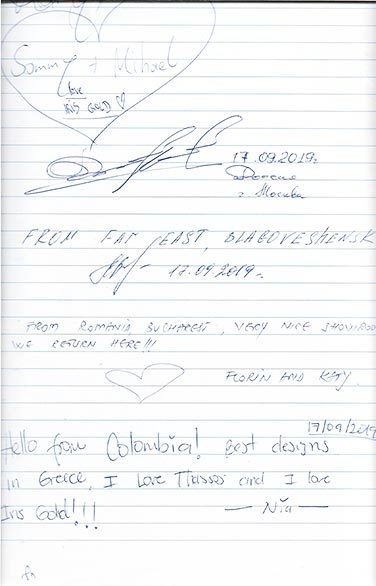 Sommy + Mihael
love
IRIS GOLD
17.09.2019г.
Россия
г. Москва
FROM FAT EAST, BLAGOVESHENSK
17.09.2019г.
FROM ROMANIA BUCHAREST, VERY NICE SHOWROO
WE RETURN HERE!!!
FLORIN AND KATY.
17/09/2019
Hello from Colombia! Best designs
in Greece, I love Thassos and I love
Iris Gold!!!
— Nía —